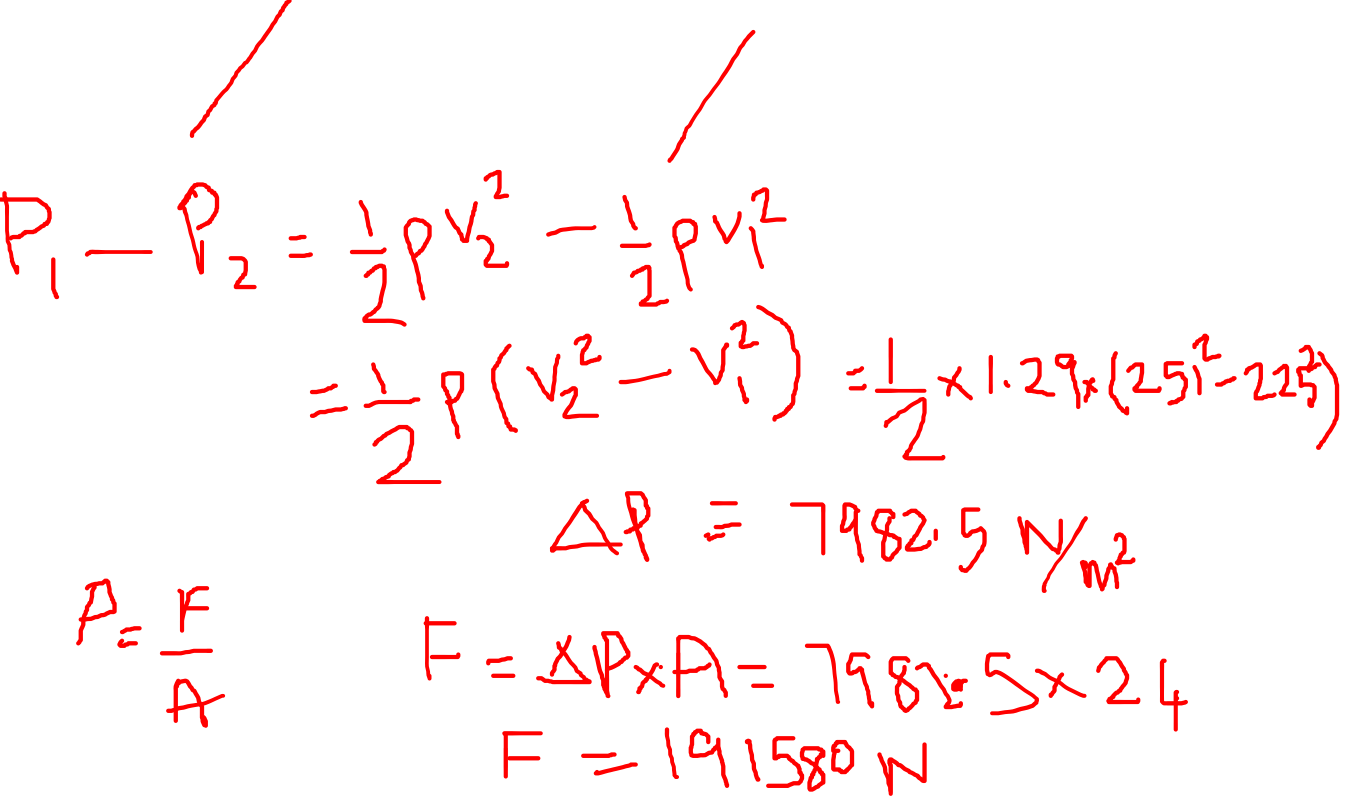 P₁ − P₂ = ½ρv₂² − ½ρv₁²
= ½ρ(v₂² − v₁²) = ½ × 1.29 × (251² − 225²)
ΔP = 7982.5 N/m²
P = F/A
F = ΔP × A = 7982.5 × 24
F = 191580 N